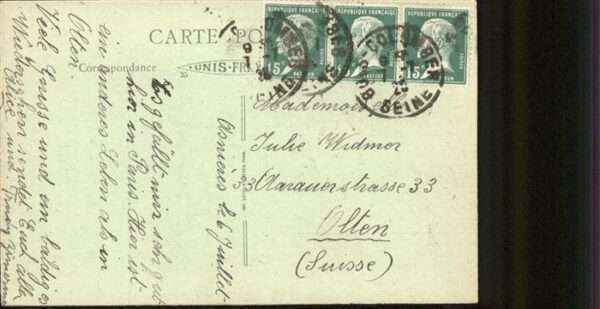 CARTE POSTALE
Correspondance
RÉPUBLIQUE FRANÇAISE
RÉPUBLIQUE FRANÇAISE
RÉPUBLIQUE FRANÇAISE
15
15
COLOMBES
SEINE
Asnières le 6 juillet
Es gefällt mir sehr gut
hier in Paris. Hier ist
ein anderes Leben als in
Olten.
Viele Grüsse und ein baldiges
Wiedersehen sendet Euch alle
Alice und
Mademoiselle
Julie Widmer
33 Aarauerstrasse 33
Olten
(Suisse)